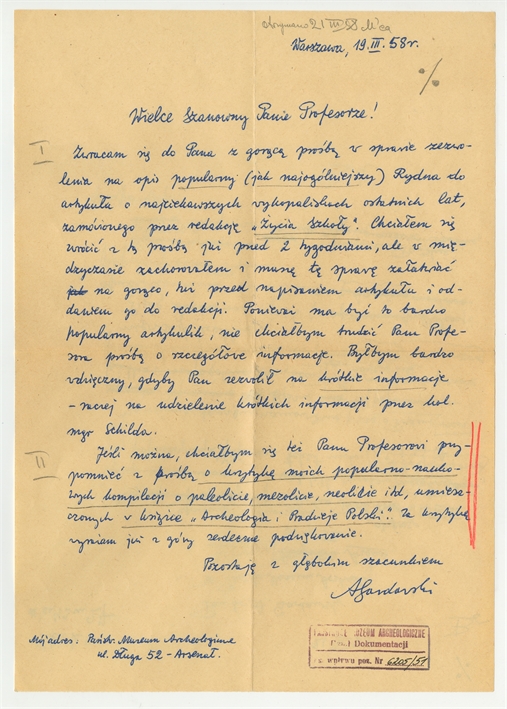 otrzymano 21 III 58
Warszawa, 19.III.58r.
%
Wielce Szanowny Panie Profesorze!
I
Zwracam się do Pana z gorącą prośbą w sprawie zezwo-
lenia na opis popularny (jak najogólniejszy) Rydna do
artykułu o najciekawszych wykopaliskach ostatnich lat,
zamówionego przez redakcję „Życia Szkoły". Chciałem się
zwrócić z tą prośbą już przed 2 tygodniami, ale w mię-
dzyczasie zachorowałem i muszę tę sprawę załatwiać
na gorąco, tuż przed napisaniem artykułu i od-
daniem go do redakcji. Ponieważ ma być to bardzo
popularny artykulik, nie chciałbym trudzić Pana Profe-
sora prośbą o szczegółowe informacje. Byłbym bardzo
wdzięczny, gdyby Pan zezwolił na krótkie informacje
- raczej na udzielenie krótkich informacji przez kol.
mgr Schilda.
II
Jeśli można, chciałbym się też Panu Profesorowi przy-
pomnieć z prośbą o krytykę moich popularno-nauko-
wych kompilacji o paleolicie, mezolicie, neolicie itd, umiesz-
czonych w książce „Archeologia i Pradzieje Polski". Za krytykę
wyrażam już z góry serdeczne podziękowanie.
Pozostaję z głębokim szacunkiem
AGardawski
Mój adres: Państw. Muzeum Archeologiczne
ul. Długa 52 - Arsenał.
PAŃSTWOWE MUZEUM ARCHEOLOGICZNE
Dział Dokumentacji
wpływu poz. Nr 6205/51